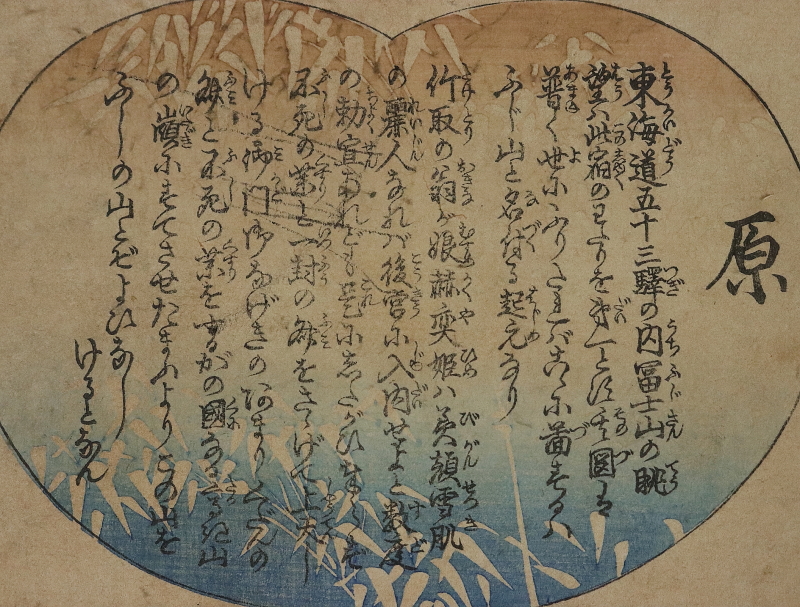 原
東海道五十三驛の内冨士山の眺
望ハ此宿のわたりを第一とす其圖は
普く世にふりたれバこゝに図するハ
ふじ山と名付る起元なり
竹取の翁が娘赫奕姫ハ美顔雪肌
の麗人なれバ後宮に入内せよと数度
の勅宣あれども是にしたがひ奉らず
不死の薬と一封の文をさゝげて上天し
ける御門御なげきのあまりくだんの
文と不死の薬をするがの國なる高き山
の嶺にすてさせたまふよりこの山を
ふしの山とぞよびなし
けるとなん